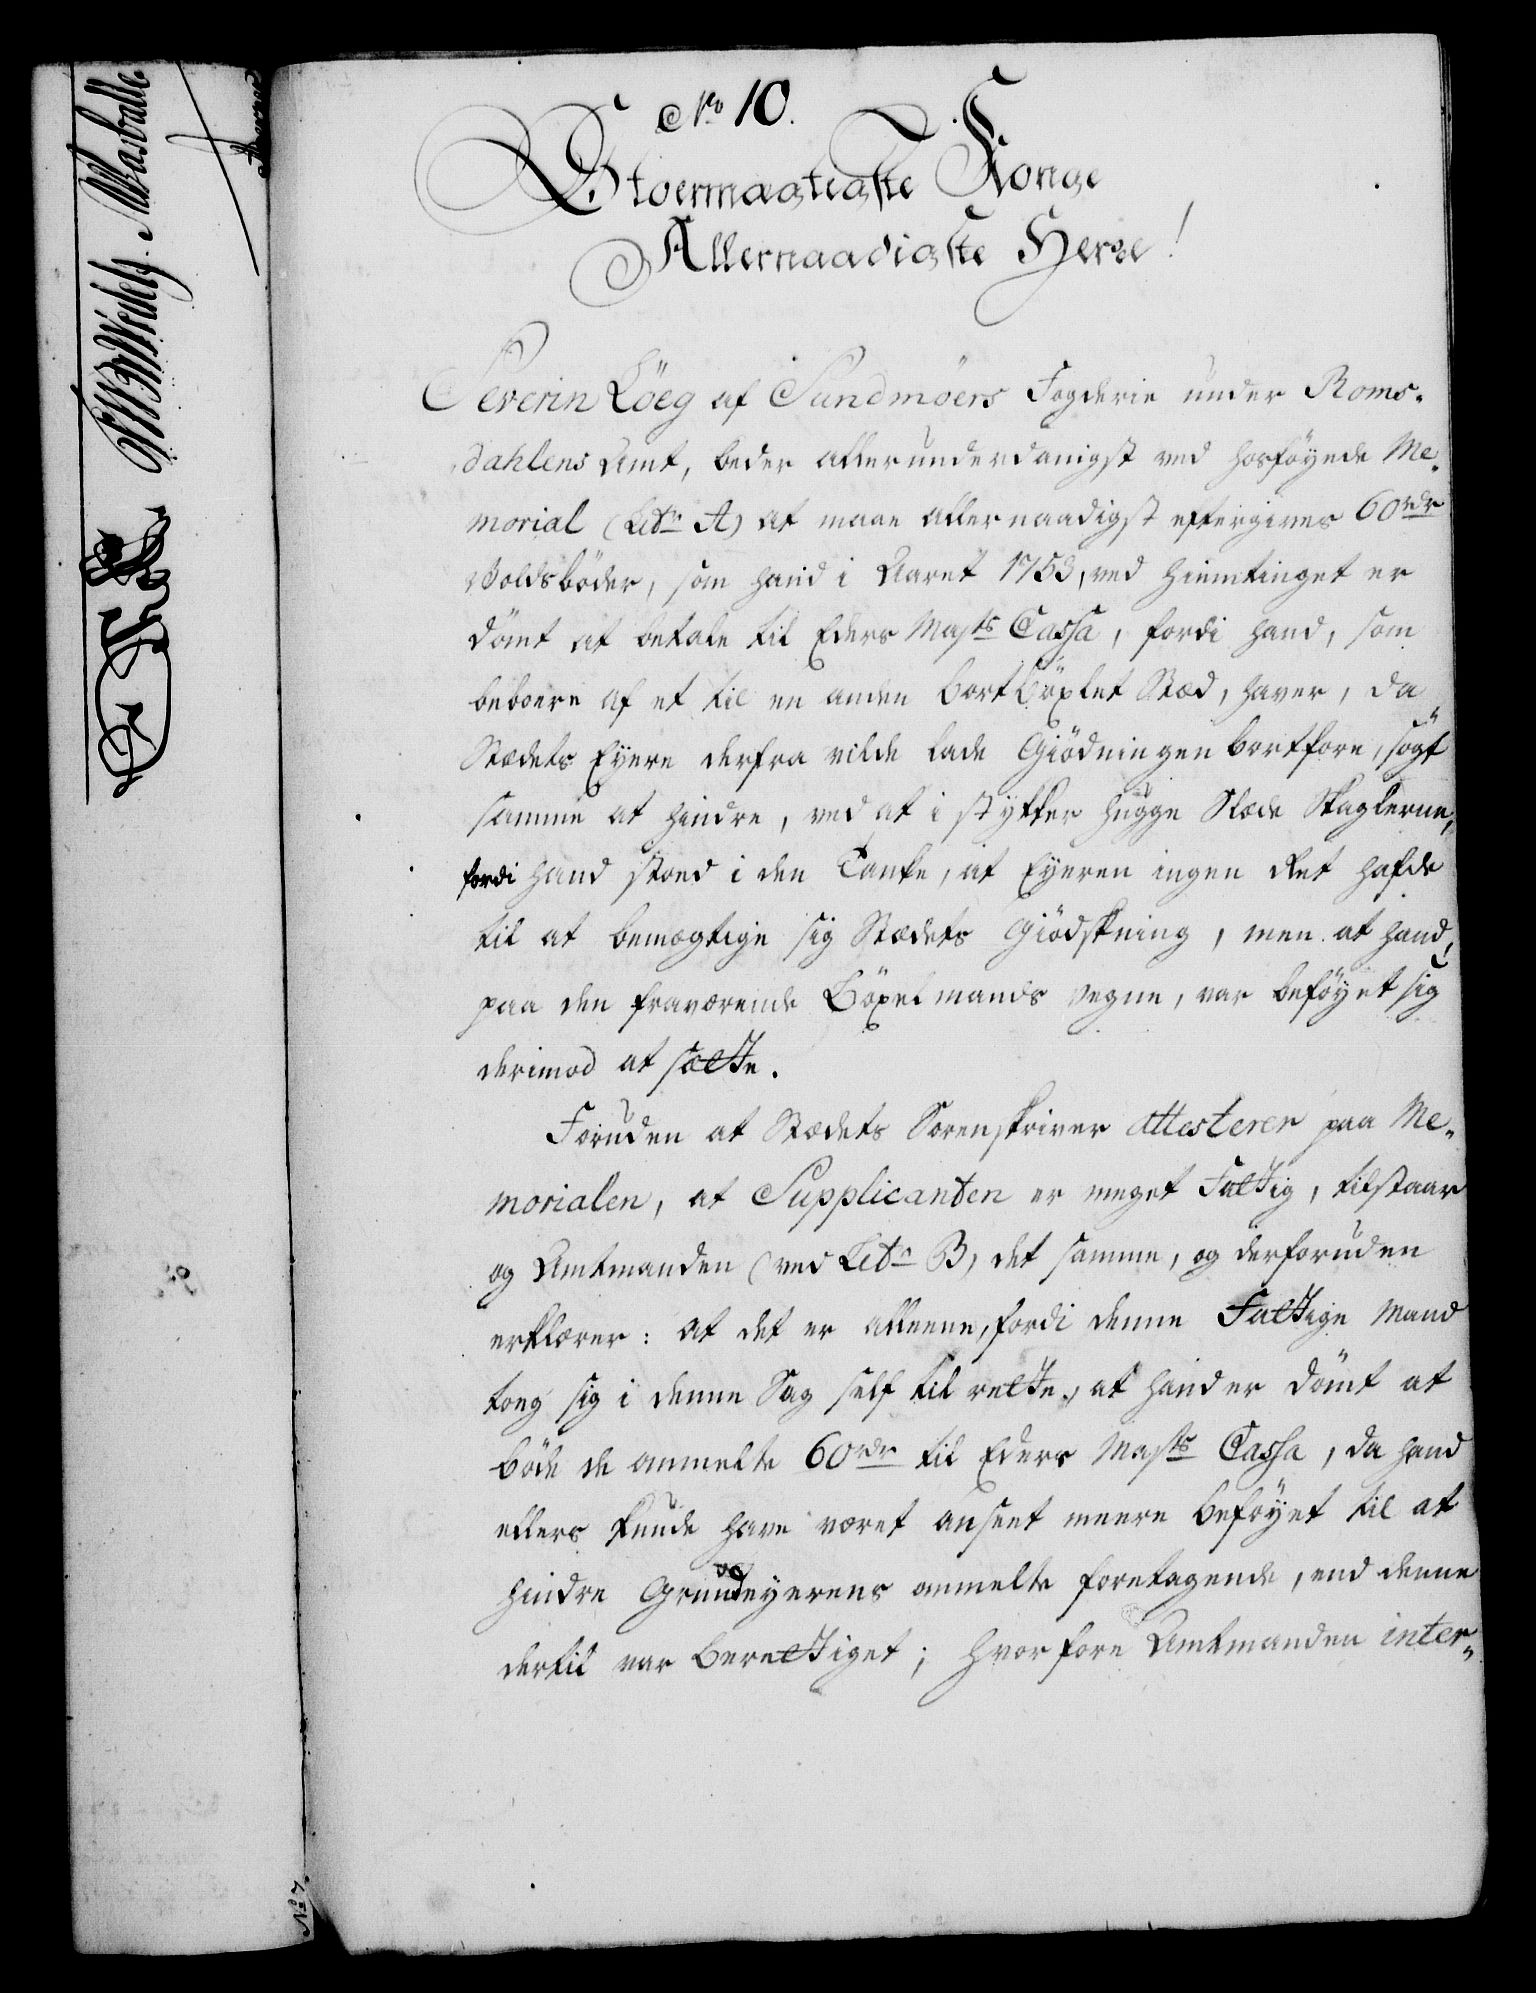 No 10.
Stoermægtigste Konge
Allernaadigste Herre!
Severin Löeg af Sundmöers Fogderie under Roms-
dahlens Amt, beder allerunderdanigst ved hosföyede Me-
morial (Litr A) at maae allernaadigst eftergives 60 rdr
Voldsböder, som hand i Aaret 1753, ved Hiemtinget er
dömt at betale til Eders Majts Cassa, fordi hand, som
beboere af et til en anden bortböxlet Stæd, haver, da
Stædets Eyere derfra vilde lade Giödningen bortföre, sögt
samme at hindre, ved at i stÿkker hugge Slæde Skaglerne,
fordi hand stoed i den Tanke, at Eyeren ingen Ret hafde
til at bemægtige sig Stædets Giödskning, men at hand,
paa den fraværende Böxelmands vegne, var beföyet sig
derimod at sætte.
Foruden at Stædets Sorenskriver attesterer paa Me-
morialen, at Supplicanten er meget Fattig, tilstaar
og Amtmanden (ved Litr B) det samme, og derforuden
erklærer: at det er alleene, fordi denne Fattige Mand
tog sig i denne Sag self til rette, at hand er dömt at
böde de anmelte 60 rdr til Eders Majts Cassa, da hand
ellers kunde have været anseet meere beföyet til at
hindre Grundeyerens anmelte foretagende, end denne
dertil var berettiget; hvorfore Amtmanden inter-
No 7